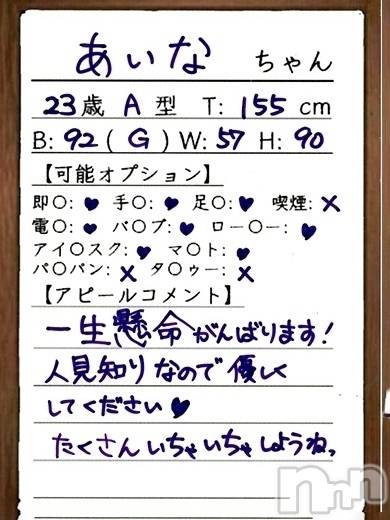 あいな ちゃん
23歳 A 型 T: 155 cm
B: 92 ( G ) W: 57 H: 90
【可能オプション】
即〇: ♥ 手〇: ♥ 足〇: ♥ 喫煙: ×
電〇: ♥ バ〇ブ: ♥ ロー〇ー: ♥
アイ〇スク: ♥ マ〇ト: ♥
パ〇パン: × タ〇ゥー: ×
【アピールコメント】
一生懸命がんばります!
人見知りなので優しく
してください♥
たくさんいちゃいちゃしようねっ